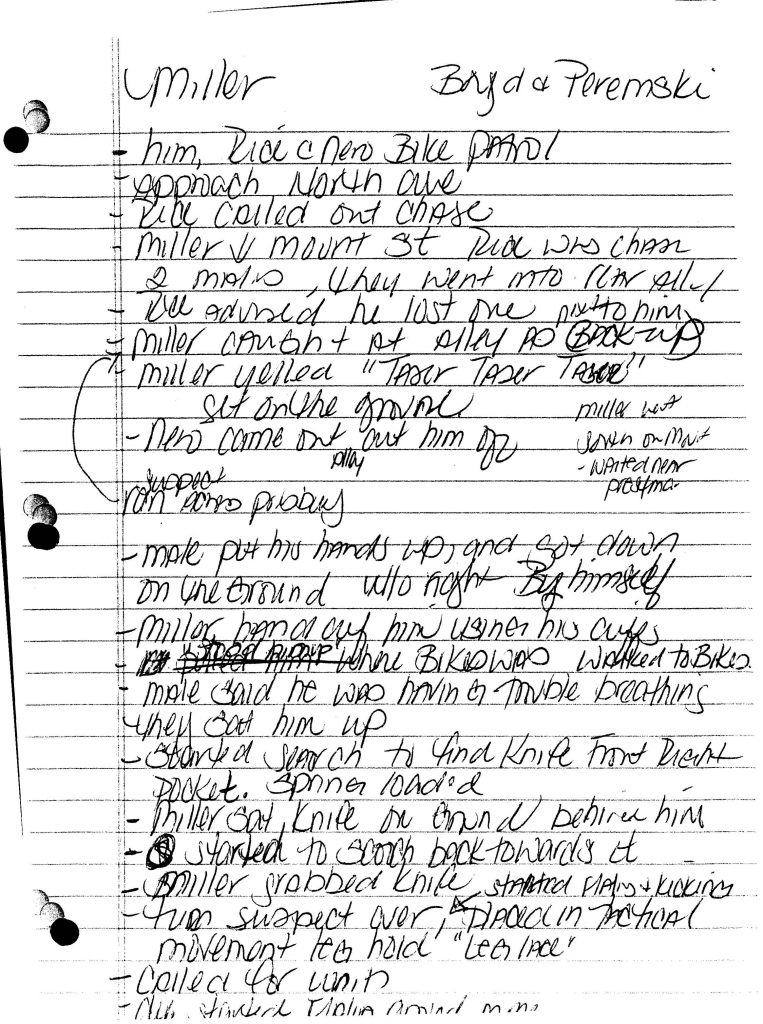 Miller Boyd & Peremski
- him, Rice c Nero Bike Patrol
- approach North Ave
- Rice called out chase
- Miller ↓ mount St Rice was chase
2 males, they went into rear alley
- Rice advised he lost one him
- Miller caught at alley as Back-up
- Miller yelled "Taser Taser Taser"
get on the ground
miller went
south on Mount
- waited near
- Nero came out cut him off
alley
suspect
ran across
- male put his hands up, and got down
on the ground w/o right By himself
- Miller hand cuff him using his cuffs
- where Bikes was walked to Bikes.
- male said he was having trouble breathing
they sat him up
- started search to find knife Front Right
pocket. spring loaded
- Miller sat knife on ground behind him
- started to scooch back towards it
- Miller grabbed knife, started & kicking
- turn suspect over, placed in Tactical
movement leg hold "Leg lace"
- called for unit
- started around